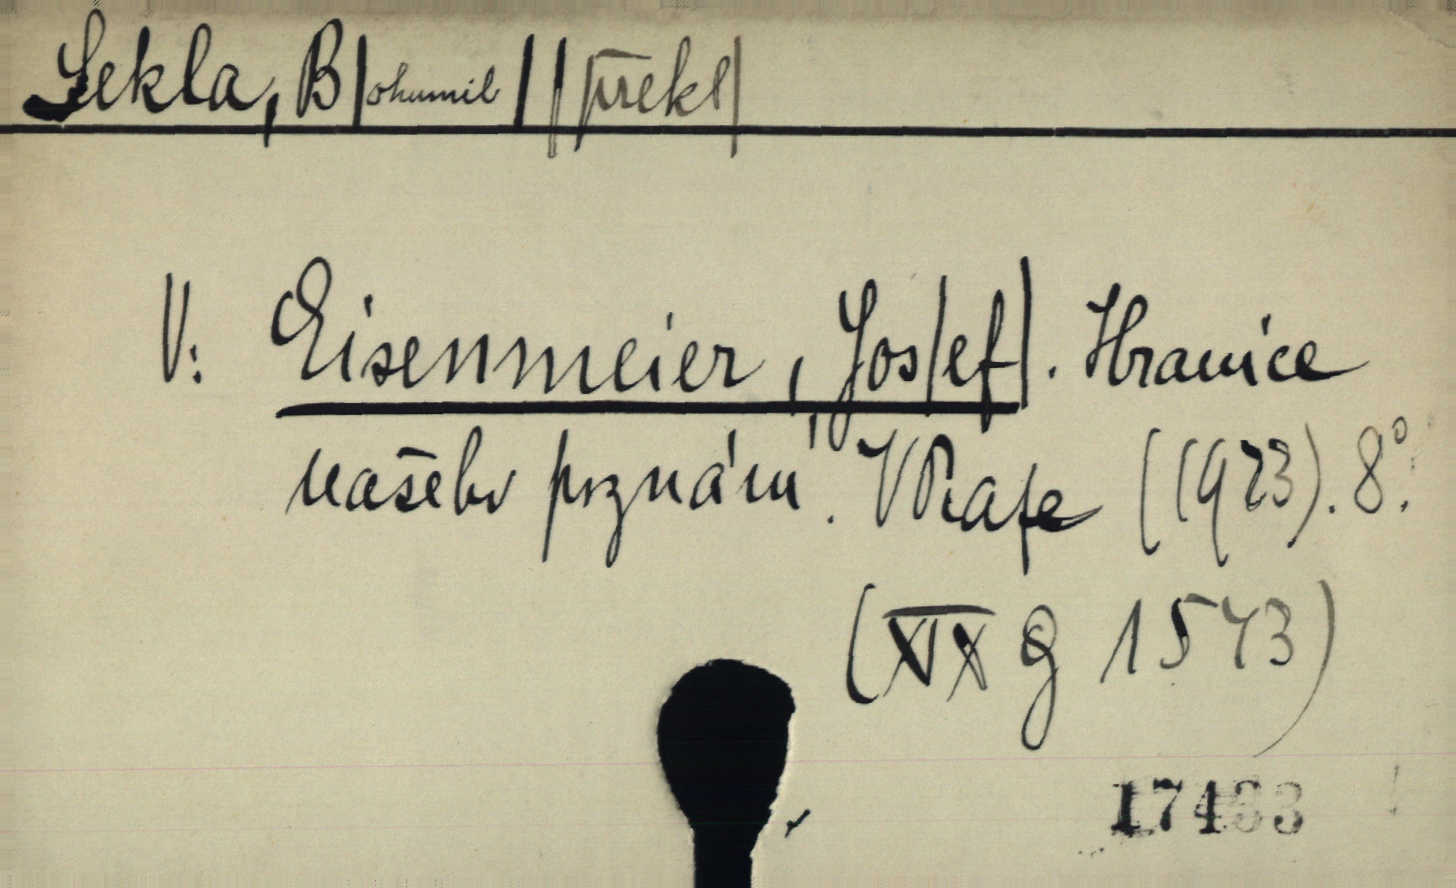 Sekla, B|ohumil| |překl|
V: Eisenmeier, Jos|ef|. Hranice
našeho poznání. V Praze (1923). 8°.
(XIX g 1543)